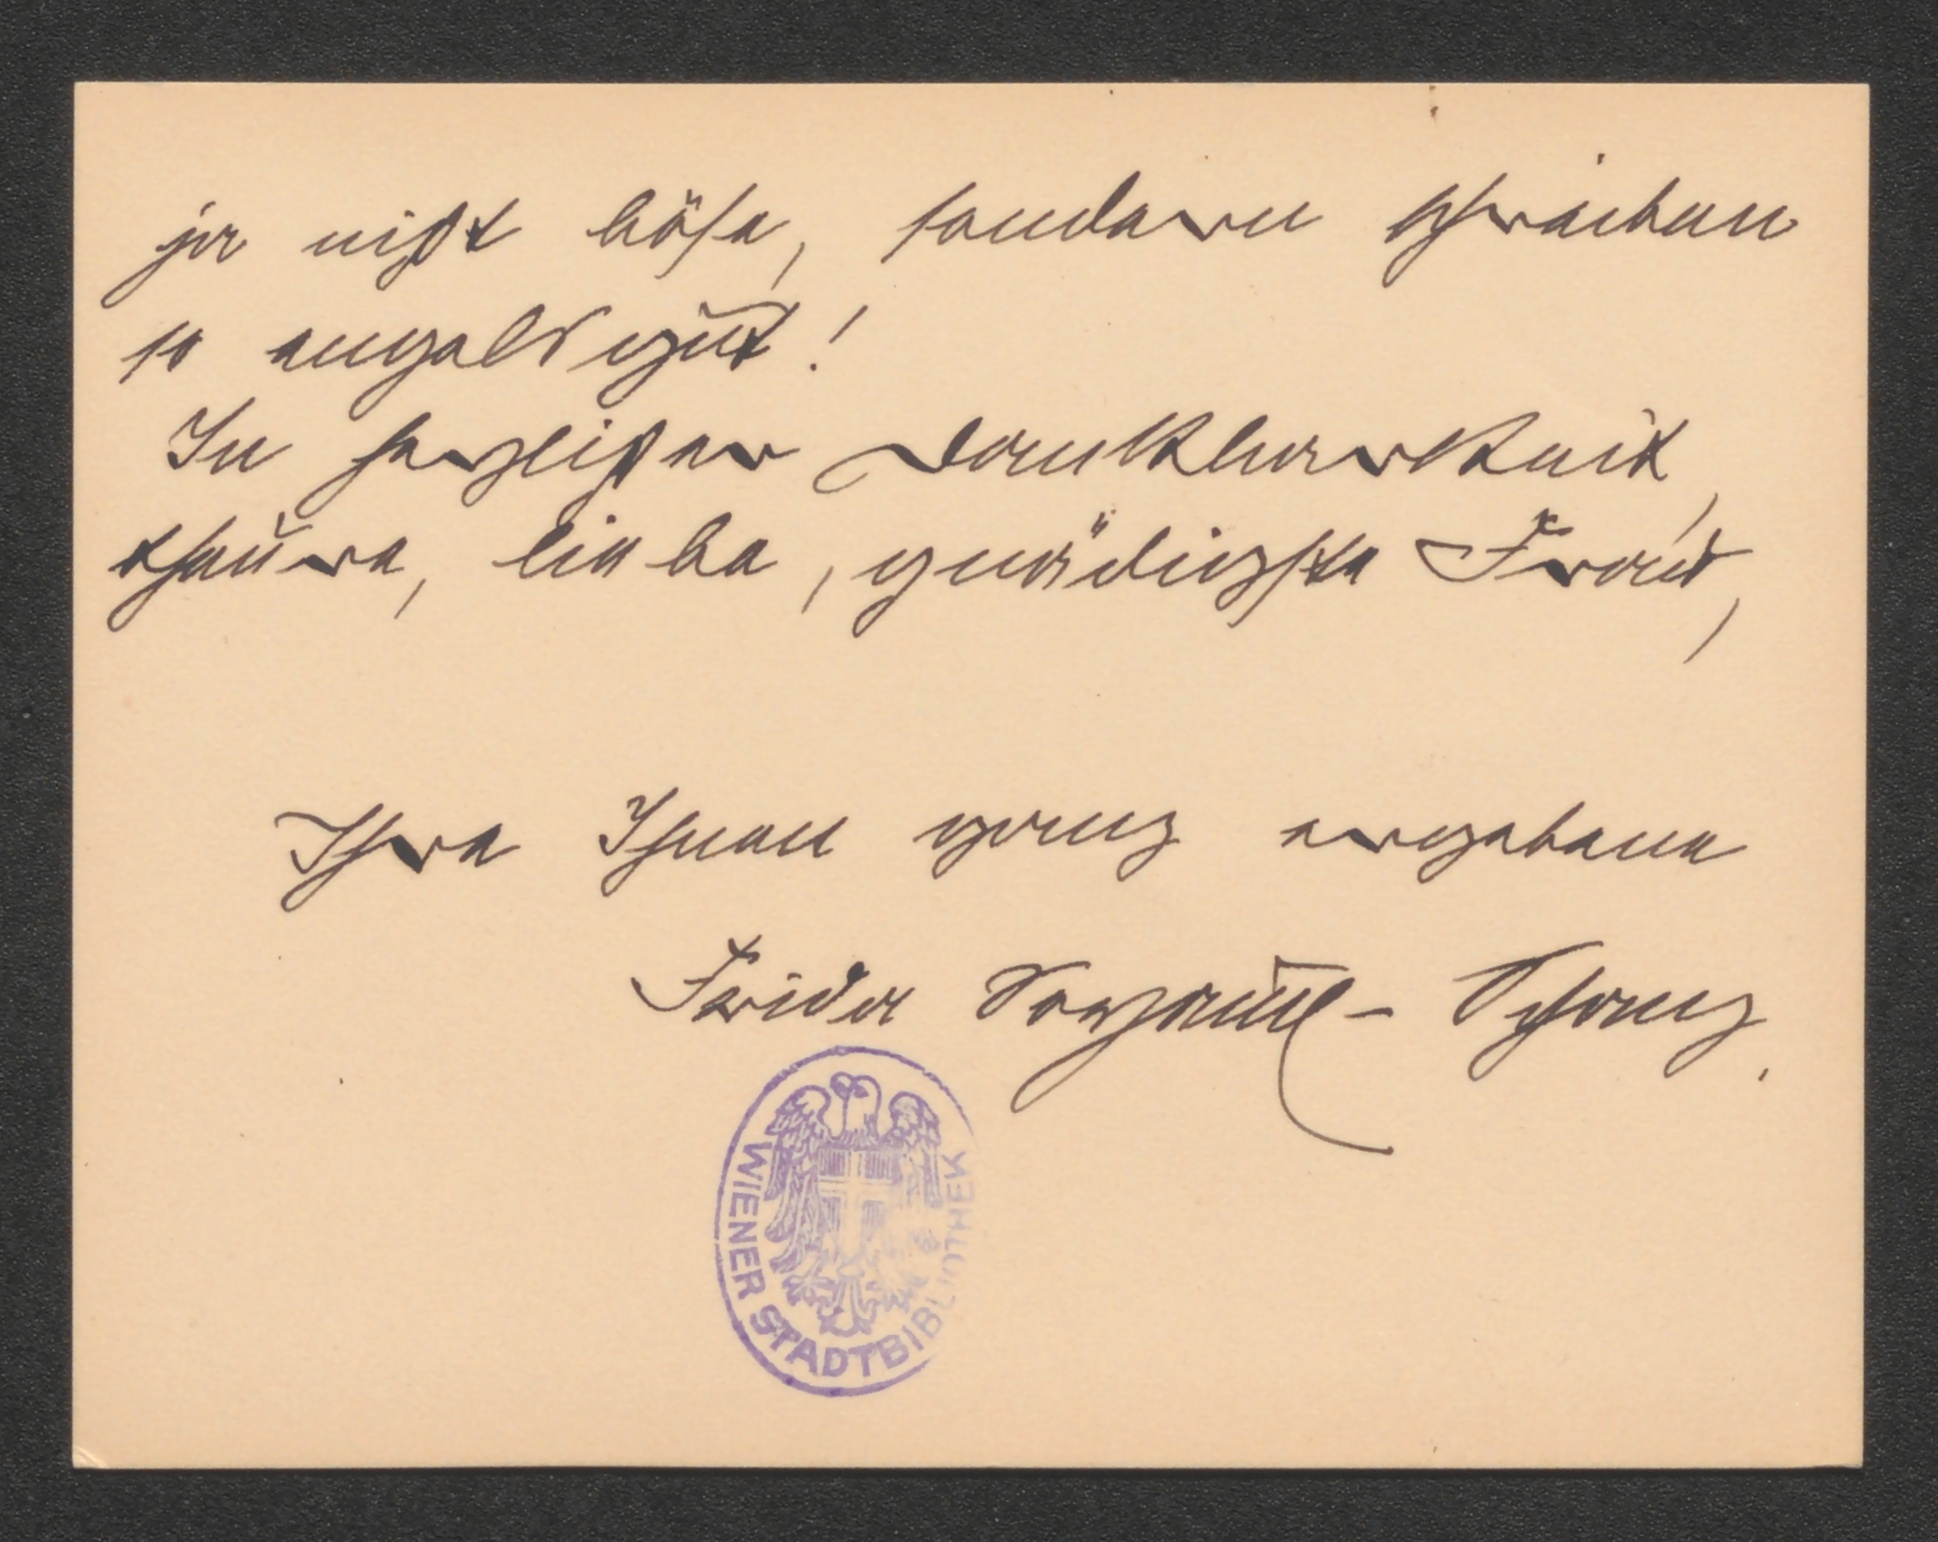 ja nicht böse, sondern schreiben
so engelsgut!
In herzlicher Dankbarkeit,
theure, liebe, gnädigste Frau,
Ihre Ihnen ganz ergebene
Frida Soyaux-Schanz.
WIENER STADTBIBLIOTHEK